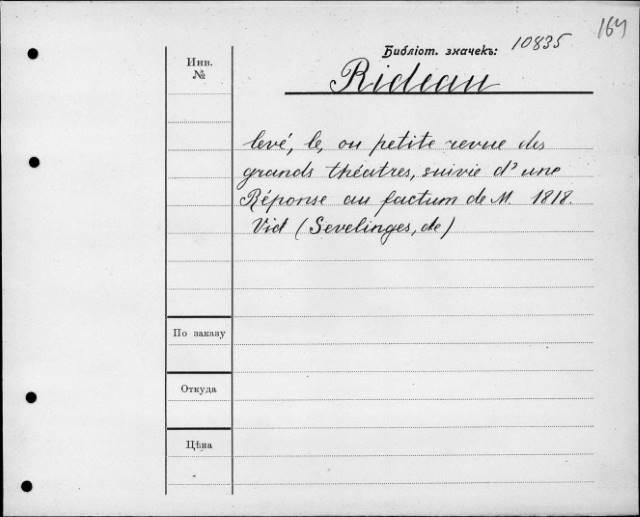 164
Библіот. значекъ: 10835
Инв. №
Rideau
levé, le, ou petite revue des
grands théatres, suivie d'une
Réponse au factum de M. 1818.
Vid (Sevelinges, de)
По заказу
Откуда
Цѣна